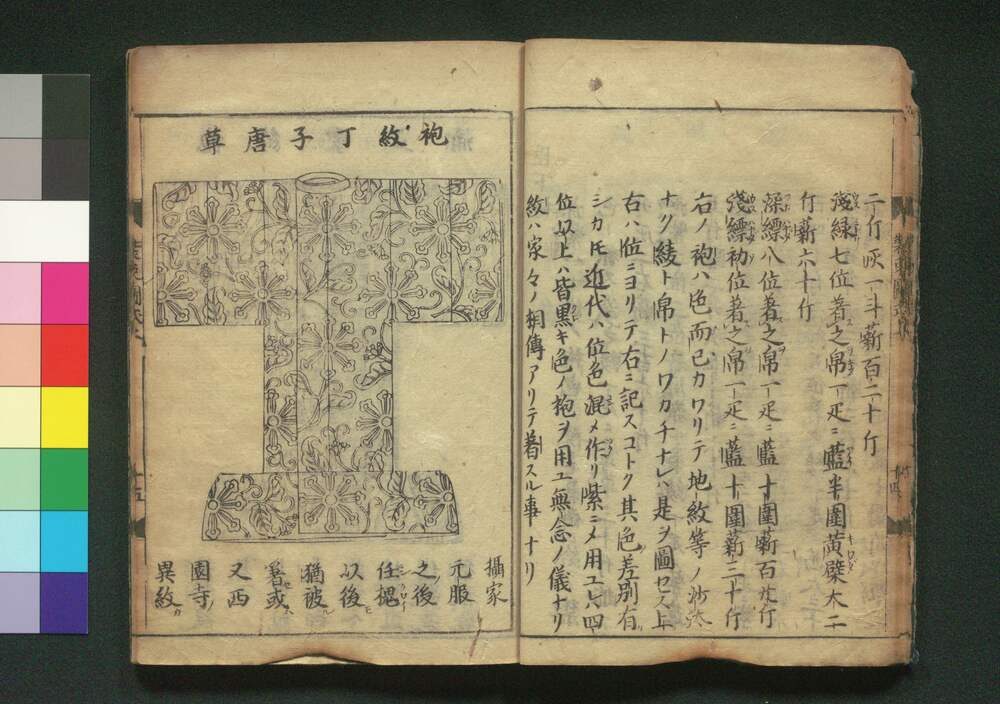 二斤灰一斗薪百二十斤
浅緑七位着之帛一疋ニ藍半圍黄檗大二
斤薪六十斤
深縹八位着之帛一疋ニ藍十圍薪百廿斤
浅縹初位着之帛一疋ニ藍十圍薪二十斤
右ノ袍ハ色而已カワリテ地紋等ノ沙汰
ナク綾ト帛トノワカチナレハ是ヲ圖セス上
右ハ位ニヨリテ右ニ記スコトク其色差別有
シカ𪜈近代ハ位色混メ作リ紫ニメ用ユ六四
位以上ハ皆黒キ色ノ袍ヲ用ユ無念ノ儀ナリ
紋ハ家々ノ相傳アリテ着スル事ナリ
袍紋丁子唐草
攝家
元服
之後
任槐
以後
猶被
着或
又西
園寺
異紋